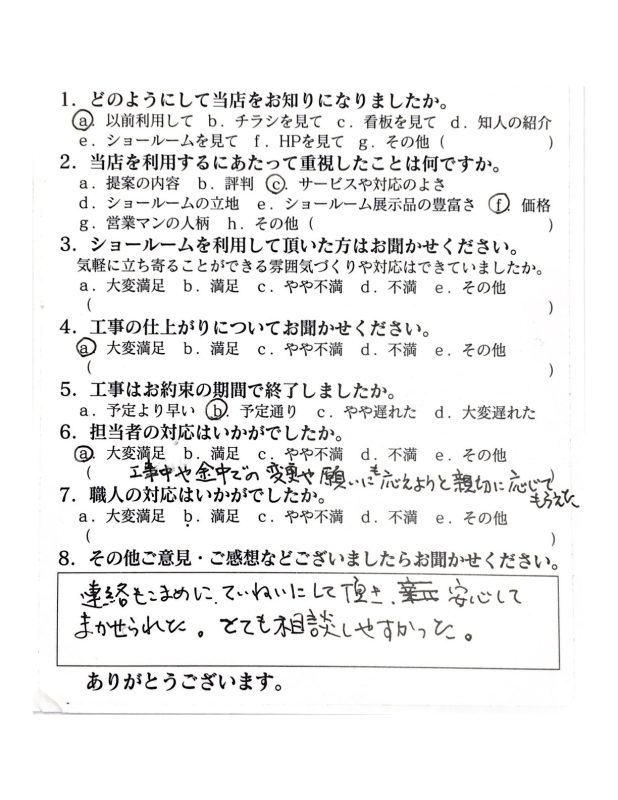 1．どのようにして当店をお知りになりましたか。
a．以前利用して b．チラシを見て c．看板を見て d．知人の紹介
e．ショールームを見て f．HPを見て g．その他（　　　　　　）
2．当店を利用するにあたって重視したことは何ですか。
a．提案の内容 b．評判 c．サービスや対応のよさ
d．ショールームの立地 e．ショールーム展示品の豊富さ f．価格
g．営業マンの人柄 h．その他（　　　　　　）
3．ショールームを利用して頂いた方はお聞かせください。
気軽に立ち寄ることができる雰囲気づくりや対応はできていましたか。
a．大変満足 b．満足 c．やや不満 d．不満 e．その他
（　　　　　　）
4．工事の仕上がりについてお聞かせください。
a．大変満足 b．満足 c．やや不満 d．不満 e．その他
（　　　　　　）
5．工事はお約束の期間で終了しましたか。
a．予定より早い b．予定通り c．やや遅れた d．大変遅れた
6．担当者の対応はいかがでしたか。
a．大変満足 b．満足 c．やや不満 d．不満 e．その他
（工事中や金中での変更や願いにも応えようと親切に応じて）
もらえた
7．職人の対応はいかがでしたか。
a．大変満足 b．満足 c．やや不満 d．不満 e．その他
（　　　　　　）
8．その他ご意見・ご感想などございましたらお聞かせください。
連絡もこまめに、ていねいにして頂き、安心して
まかせられた。とても相談しやすかった。
ありがとうございます。